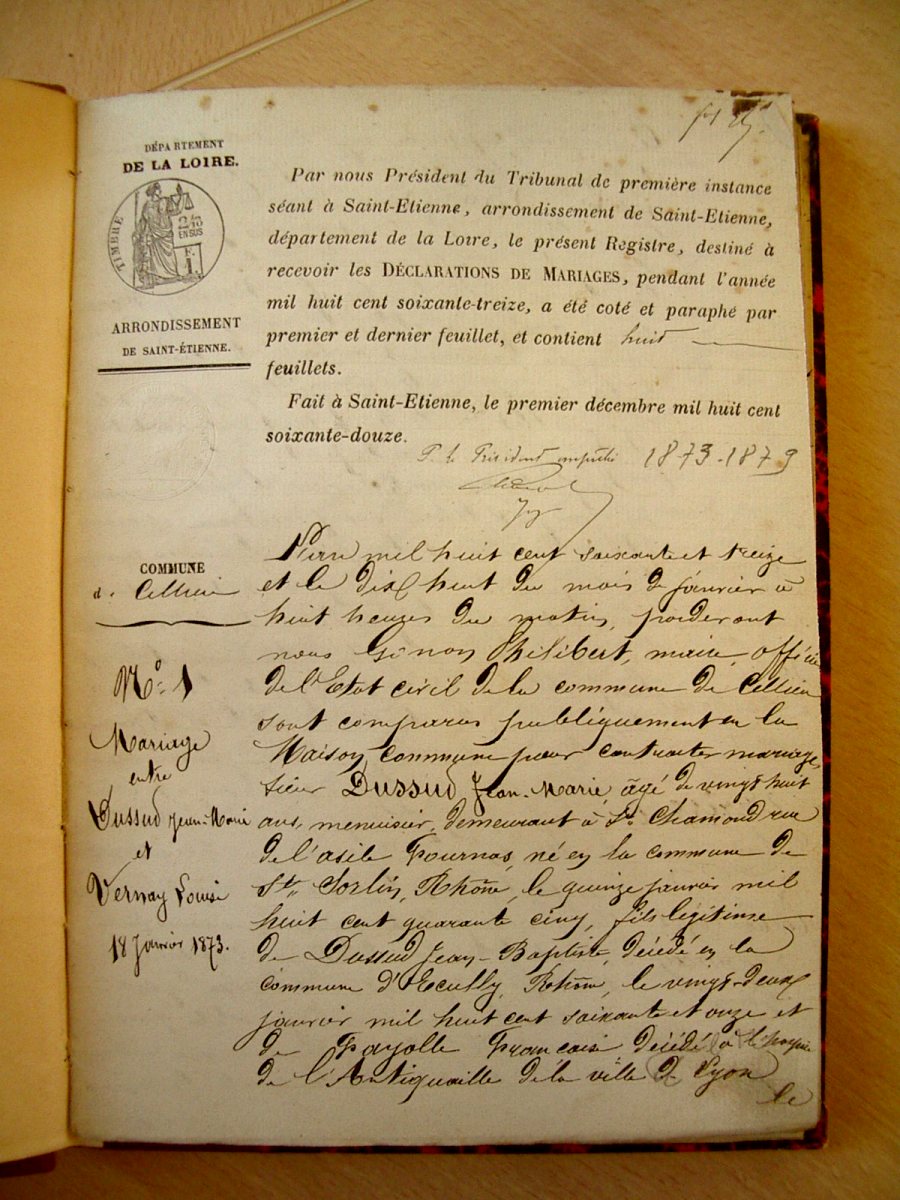 DÉPARTEMENT
DE LA LOIRE.
TIMBRE
ENSUS
Par nous Président du Tribunal de première instance
séant à Saint-Etienne, arrondissement de Saint-Etienne,
département de la Loire, le présent Registre, destiné à
recevoir les DÉCLARATIONS DE MARIAGES, pendant l'année
mil huit cent soixante-treize, a été coté et paraphé par
premier et dernier feuillet, et contient huit
feuillets.
Fait à Saint-Etienne, le premier décembre mil huit cent
soixante-douze.
ARRONDISSEMENT
DE SAINT-ÉTIENNE.
P. le Président empêché 1873-1879
COMMUNE
de Cellieu
No. 1
Mariage
entre
Dussud Jean-Marie
et
Vernay Louise
18 Janvier 1873.
mil huit cent soixante et treize
et le dix huit du mois de janvier à
huit heures du matin, pardevant
nous Philibert, maire, officier
de l'Etat civil de la commune de Cellieu
sont comparus publiquement en la
Maison commune pour contracter mariage,
sieur Dussud Jean-Marie, âgé de vingt huit
ans, menuisier, demeurant à St. Chamond rue
de l'asile Fournas, né en la commune de
St. Sorlin, Rhône, le quinze janvier mil
huit cent quarante cinq, fils légitime
de Dussud Jean-Baptiste, décédé en la
commune d'Ecully, Rhône, le vingt-deux
janvier mil huit cent soixante et onze et
de Fayolle Francoise décédé à
de l'Antiquaille de la ville de Lyon
le